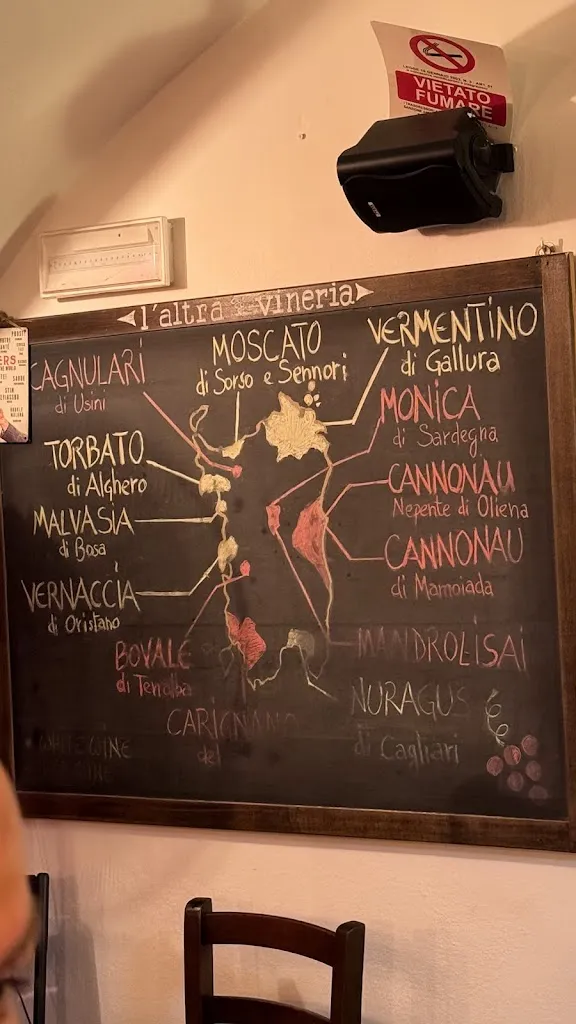 VIETATO
FUMARE
l'altra vineria
CAGNULARI
di Usini
MOSCATO
di Sorso e Sennori
VERMENTINO
di Gallura
TORBATO
di Alghero
MONICA
di Sardegna
MALVASIA
di Bosa
CANNONAU
Nepente di Oliena
VERNACCIA
di Oristano
CANNONAU
di Mamoiada
BOVALE
di Terralba
MANDROLISAI
CARIGNANO
del
NURAGUS
di Cagliari
WHITE WINE
WINE